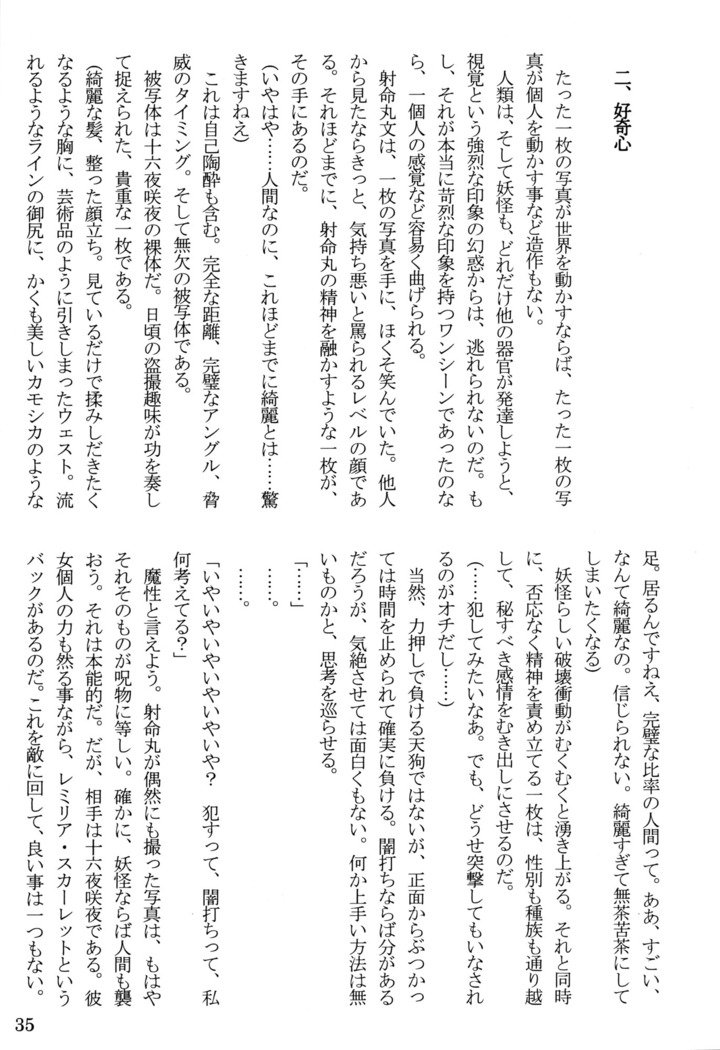 二、好奇心
たった一枚の写真が世界を動かすならば、たった一枚の写
真が個人を動かす事など造作もない。
人類は、そして妖怪も、どれだけ他の器官が発達しようと、
視覚という強烈な印象の幻惑からは、逃れられないのだ。も
し、それが本当に苛烈な印象を持つワンシーンであったのな
ら、一個人の感覚など容易く曲げられる。
射命丸文は、一枚の写真を手に、ほくそ笑んでいた。他人
から見たならきっと、気持ち悪いと罵られるレベルの顔であ
る。それほどまでに、射命丸の精神を融かすような一枚が、
その手にあるのだ。
(いやはや……人間なのに、これほどまでに綺麗とは……驚
きますねえ)
これは自己陶酔も含む。完全な距離、完璧なアングル、脅
威のタイミング。そして無欠の被写体である。
被写体は十六夜咲夜の裸体だ。日頃の盗撮趣味が功を奏し
て捉えられた、貴重な一枚である。
(綺麗な髪、整った顔立ち。見ているだけで揉みしだきたく
なるような胸に、芸術品のように引きしまったウェスト。流
れるようなラインの御尻に、かくも美しいカモシカのような
足。居るんですねえ、完璧な比率の人間って。ああ、すごい、
なんて綺麗なの。信じられない。綺麗すぎて無茶苦茶にして
しまいたくなる)
妖怪らしい破壊衝動がむくむくと湧き上がる。それと同時
に、否応なく精神を責め立てる一枚は、性別も種族も通り越
して、秘すべき感情をむき出しにさせるのだ。
(……犯してみたいなあ。でも、どうせ突撃してもいなされ
るのがオチだし……)
当然、力押しで負ける天狗ではないが、正面からぶつかっ
ては時間を止められて確実に負ける。闇打ちならば分がある
だろうが、気絶させては面白くもない。何か上手い方法は無
いものかと、思考を巡らせる。
「……」
……。
……。
「いやいやいやいやいやいや? 犯すって、闇打ちって、私
何考えてる?」
魔性と言えよう。射命丸が偶然にも撮った写真は、もはや
それそのものが呪物に等しい。確かに、妖怪ならば人間も襲
おう。それは本能的だ。だが、相手は十六夜咲夜である。彼
女個人の力も然る事ながら、レミリア・スカーレットという
バックがあるのだ。これを敵に回して、良い事は一つもない。
35